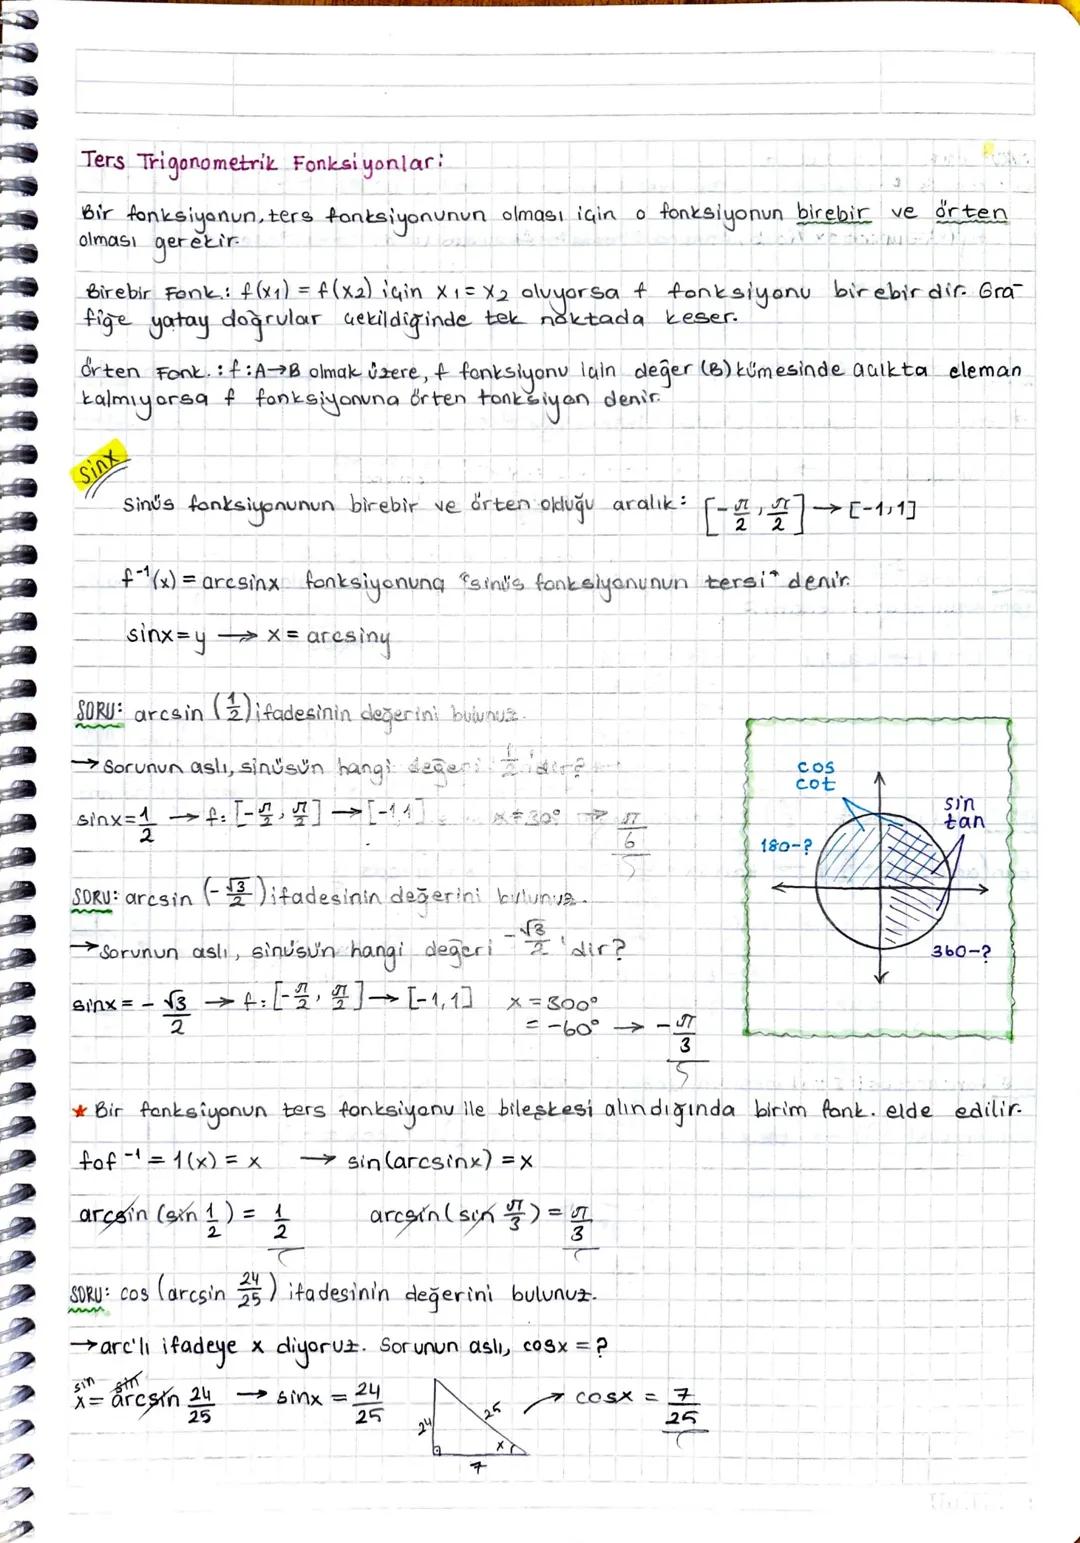 Ters Trigonometrik Fonksiyonlar:
Bir fonksiyonun, ters fonksiyonunun olması için o fonksiyonun birebir ve örten
olması gerekir.
Birebir Fonk.: f(x1) = f(x2) için x1 = x2 oluyorsa f fonksiyonu birebirdir. Gra-
fiğe yatay doğrular çekildiğinde tek noktada keser.
Örten Fonk.: f:A→B olmak üzere, f fonksiyonu için değer (B) kümesinde açıkta eleman
kalmıyorsa f fonksiyonuna örten fonksiyon denir.
Sinx
Sinüs fonksiyonunun birebir ve örten olduğu aralık: [-π/2, π/2] → [-1,1]
f⁻¹(x) = arcsinx fonksiyonuna "sinüs fonksiyonunun tersi" denir.
sinx = y → x = arcsiny
SORU: arcsin (1/2) ifadesinin değerini bulunuz.
→ Sorunun aslı, sinüsün hangi değeri 1/2 'dir?
sinx = 1/2 → f: [-π/2, π/2] → [-1,1] x = 30° → π/6
SORU: arcsin (-√3/2) ifadesinin değerini bulunuz.
→ Sorunun aslı, sinüsün hangi değeri -√3/2 'dir?
sinx = -√3/2 → f: [-π/2, π/2] → [-1,1] x = 300°
= -60° → -π/3
cos
cot
sin
tan
180-?
360-?
★ Bir fonksiyonun ters fonksiyonu ile bileşkesi alındığında birim fonk. elde edilir.
fof⁻¹ = 1(x) = x → sin(arcsinx) = x
arcsin (sin 1/2) = 1/2 arcsin (sin π/3) = π/3
SORU: cos (arcsin 24/25) ifadesinin değerini bulunuz.
→ arc'lı ifadeye x diyoruz. Sorunun aslı, cosx = ?
sin sin
x = arcsin 24/25 → sinx = 24/25 24 25 x 7 → cosx = 7/25